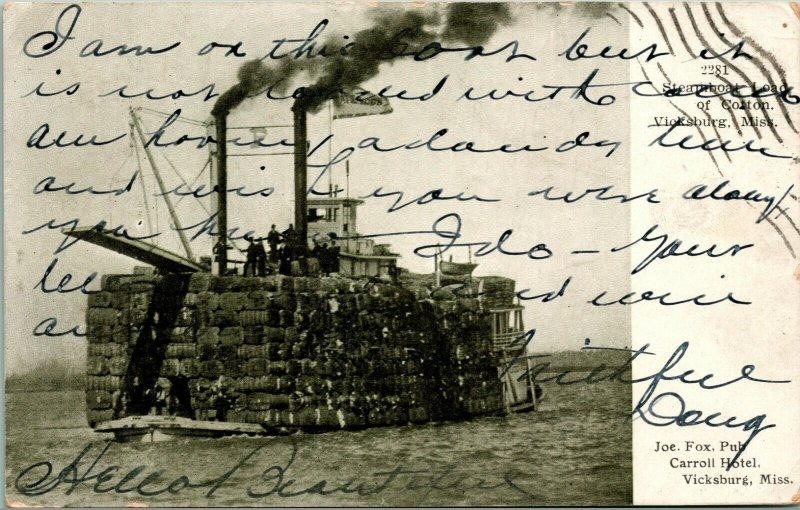 I am on this boat but it
is not loaded with cotton. We
am having a dandy time
and wish you were along.
you know I do - your
and will
Faithful
Doug
Hello Beautiful
2281
Steamboat Load
of Cotton.
Vicksburg, Miss.
Joe. Fox, Pub
Carroll Hotel,
Vicksburg, Miss.